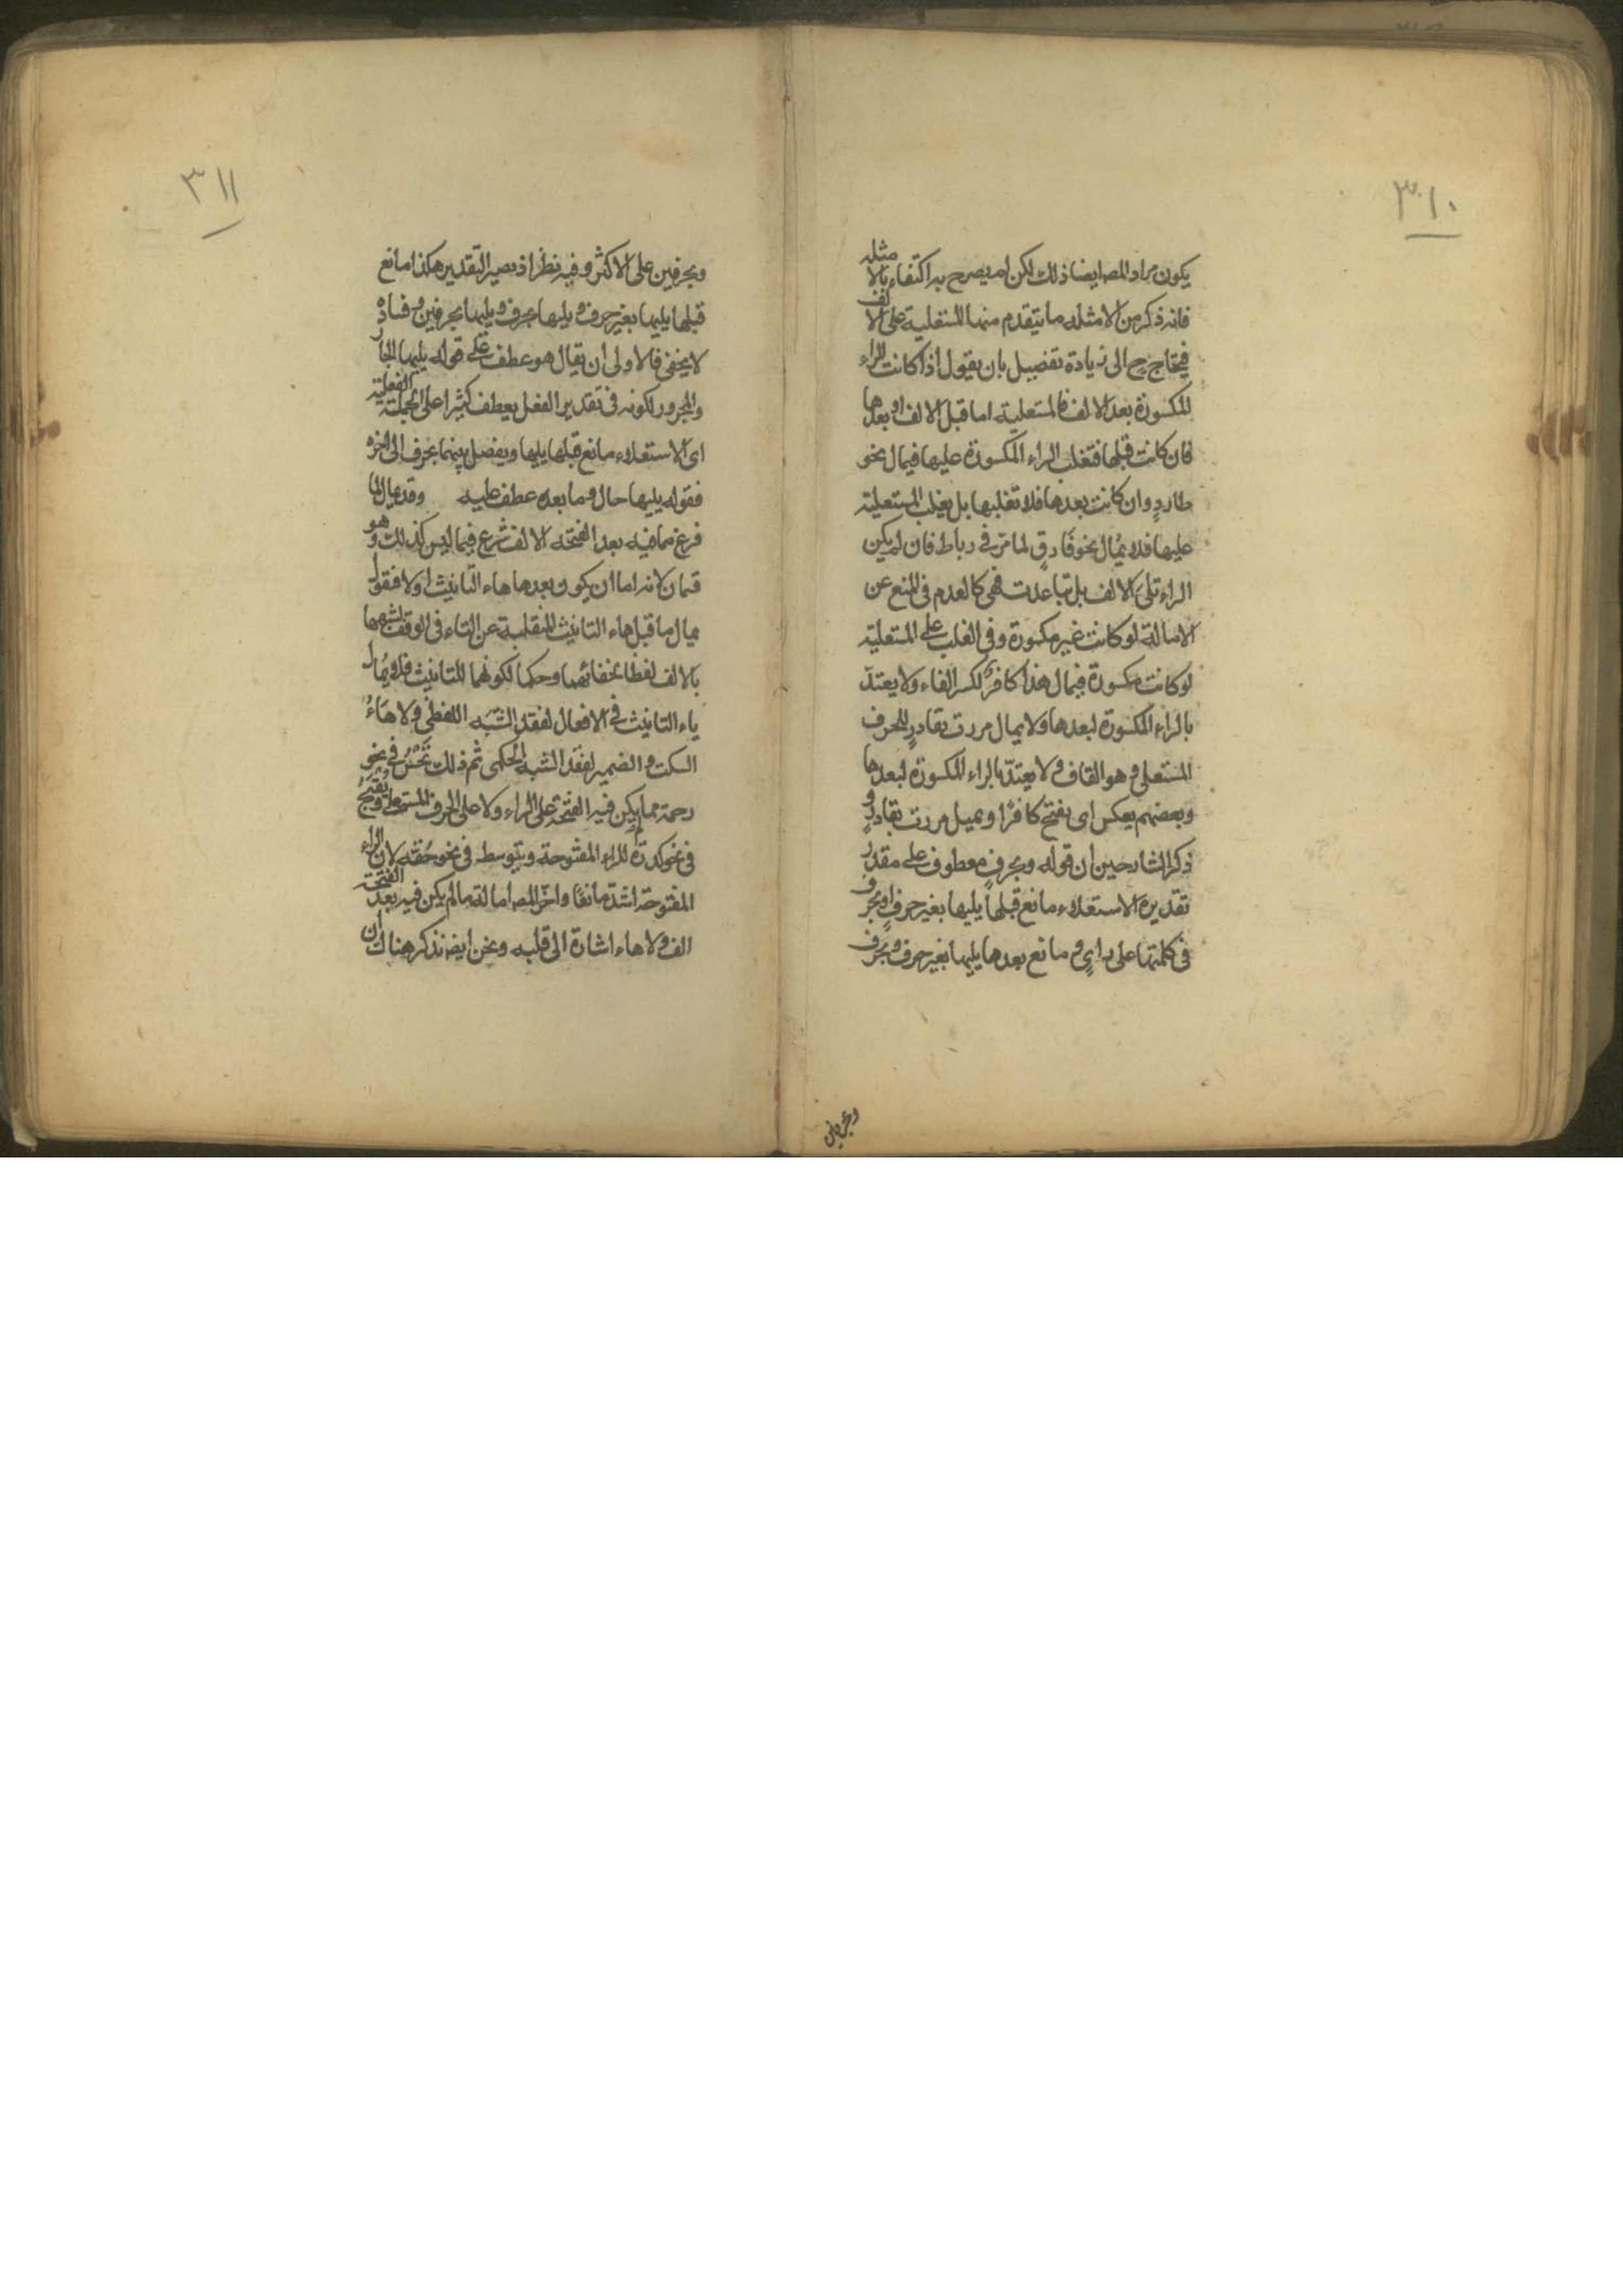 ٣١٠
يكون مراد المص ايضا ذلك لكن لم يصرح به اكتفاء بالامثله
فانه ذكر من الامثله ما يتقدم منها المستعلية على الالف
فيحتاج ح الى زيادة تفصيل بان يقول اذا كانت الراء
المكسورة بعد الالف فالمستعلية اما قبل الالف او بعدها
فان كانت قبلها فتغلب الراء المكسورة عليها فيمال نحو
طارد وان كانت بعدها فلا تغلبها بل يغلب المستعلية
عليها فلا يمال نحو فارق لما مر في رباط فان لم يكن
الراء تلي الالف بل تباعدت فهي كالعدم في المنع عن
الامالة لو كانت غير مكسورة وفي الغلب على المستعلية
لو كانت مكسورة فيمال هذا كافر لكسر الفاء ولا يعتد
بالراء المكسورة لبعدها ولا يمال مررت بقادر للحرف
المستعلى وهو القاف ولا يعتد بالراء المكسورة لبعدها
وبعضهم يعكس اى يفتح كافرا ويميل مررت بقادر و
ذكر الشارحين ان قوله وبحرف معطوف على مقدر
تقديره الاستعلاء مانع قبلها يليها بغير حرف او بحرف
في كلمتها على راي و مانع بعدها يليها بغير حرف وبحرف
وبحرفين
٣١١
وبحرفين على الاكثر وفيه نظر اذ يصير التقدير هكذا مانع
قبلها يليها بغير حرف ويليها بحرف ويليها بحرفين وفساده
لا يخفى فالاولى ان يقال هو عطف على قوله يليها الجار
والمجرور لكونه في تقدير الفعل يعطف كثيرا على الجملة الفعلية
اى الاستعلاء مانع قبلها يليها ويفصل بينهما بحرف الى اخره
فقوله يليها حال وما بعده عطف عليه وقد يمال لما
فرغ مما فيه بعد الفتحه الالف شرع فيما ليس كذلك وهو
قسمان لانه اما ان يكون بعدها هاء التانيث او لا فقول
يمال ما قبل هاء التانيث المنقلبة عن التاء في الوقف لشبهها
بالالف لفظا لخفائهما وحكما لكونهما للتانيث فلا يمال
ياء التانيث في الافعال لفقد الشبه اللفظى ولا هاء
السكت والضمير لفقد الشبه الحكمى ثم ذلك تحسن في نحو
رحمة مما لم يكن فيه الفتحة على الراء ولا على الحرف المستعلى وتقبح
في نحو كدرة للراء المفتوحة ويتوسط في نحو حقه لان الراء
المفتوحة اشد مانعا واخر المص امالة ما لم يكن فيه بعد الفتحة
الف ولا هاء اشارة الى قلبه ونحن ايضه نذكر هناك ان